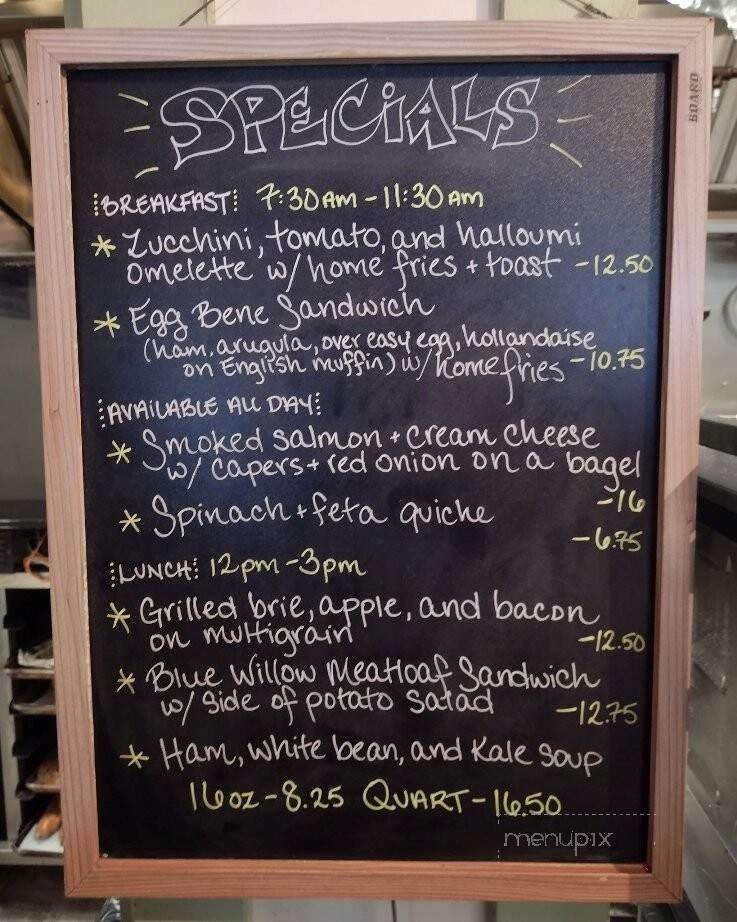 BOARD
SPECiALS
BREAKFAST 7:30AM - 11:30AM
* Zucchini, tomato, and halloumi
omelette w/ home fries + toast -12.50
* Egg Bene Sandwich
(ham, arugula, over easy egg, hollandaise
on English muffin) w/ home fries -10.75
AVAILABLE ALL DAY
* Smoked salmon + cream cheese
w/ capers + red onion on a bagel
-16
* Spinach + feta quiche
-6.75
LUNCH 12pm - 3pm
* Grilled brie, apple, and bacon
on multigrain -12.50
* Blue Willow Meatloaf Sandwich
w/ side of potato salad -12.75
* Ham, white bean, and Kale soup
16oz - 8.25 QUART - 16.50
menupix